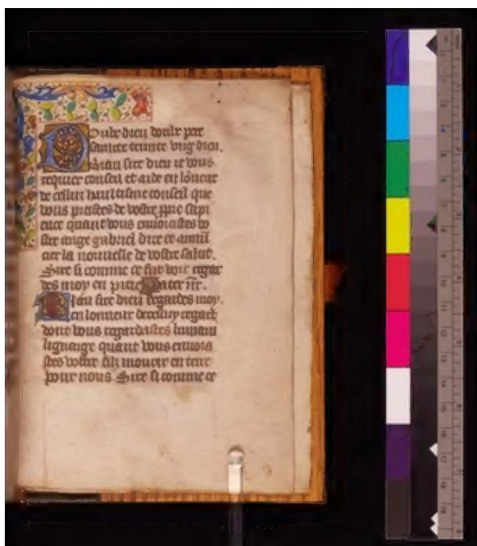 Doulx dieu doulx pere
saincte trinite ung dieu.
Biau sire dieu ie vous
requier conseil et aide en lōneur
de cellui haultisme conseil que
vous preistes de vostre ppre sapi
ence quant vous envoiastes vo
stre ange gabriel dire et anun
cier la nouuelle de vostre salut.
Sire si comme ce fut voir regar
des moy en pitie Pater nr̄.
Biau sire dieu regardes moy.
en lonneur de cestuy regart
dont vous regardastes humain
lignaige quant vous envoia
stes vostre filz mourir en terre
pour nous Sire si comme ce